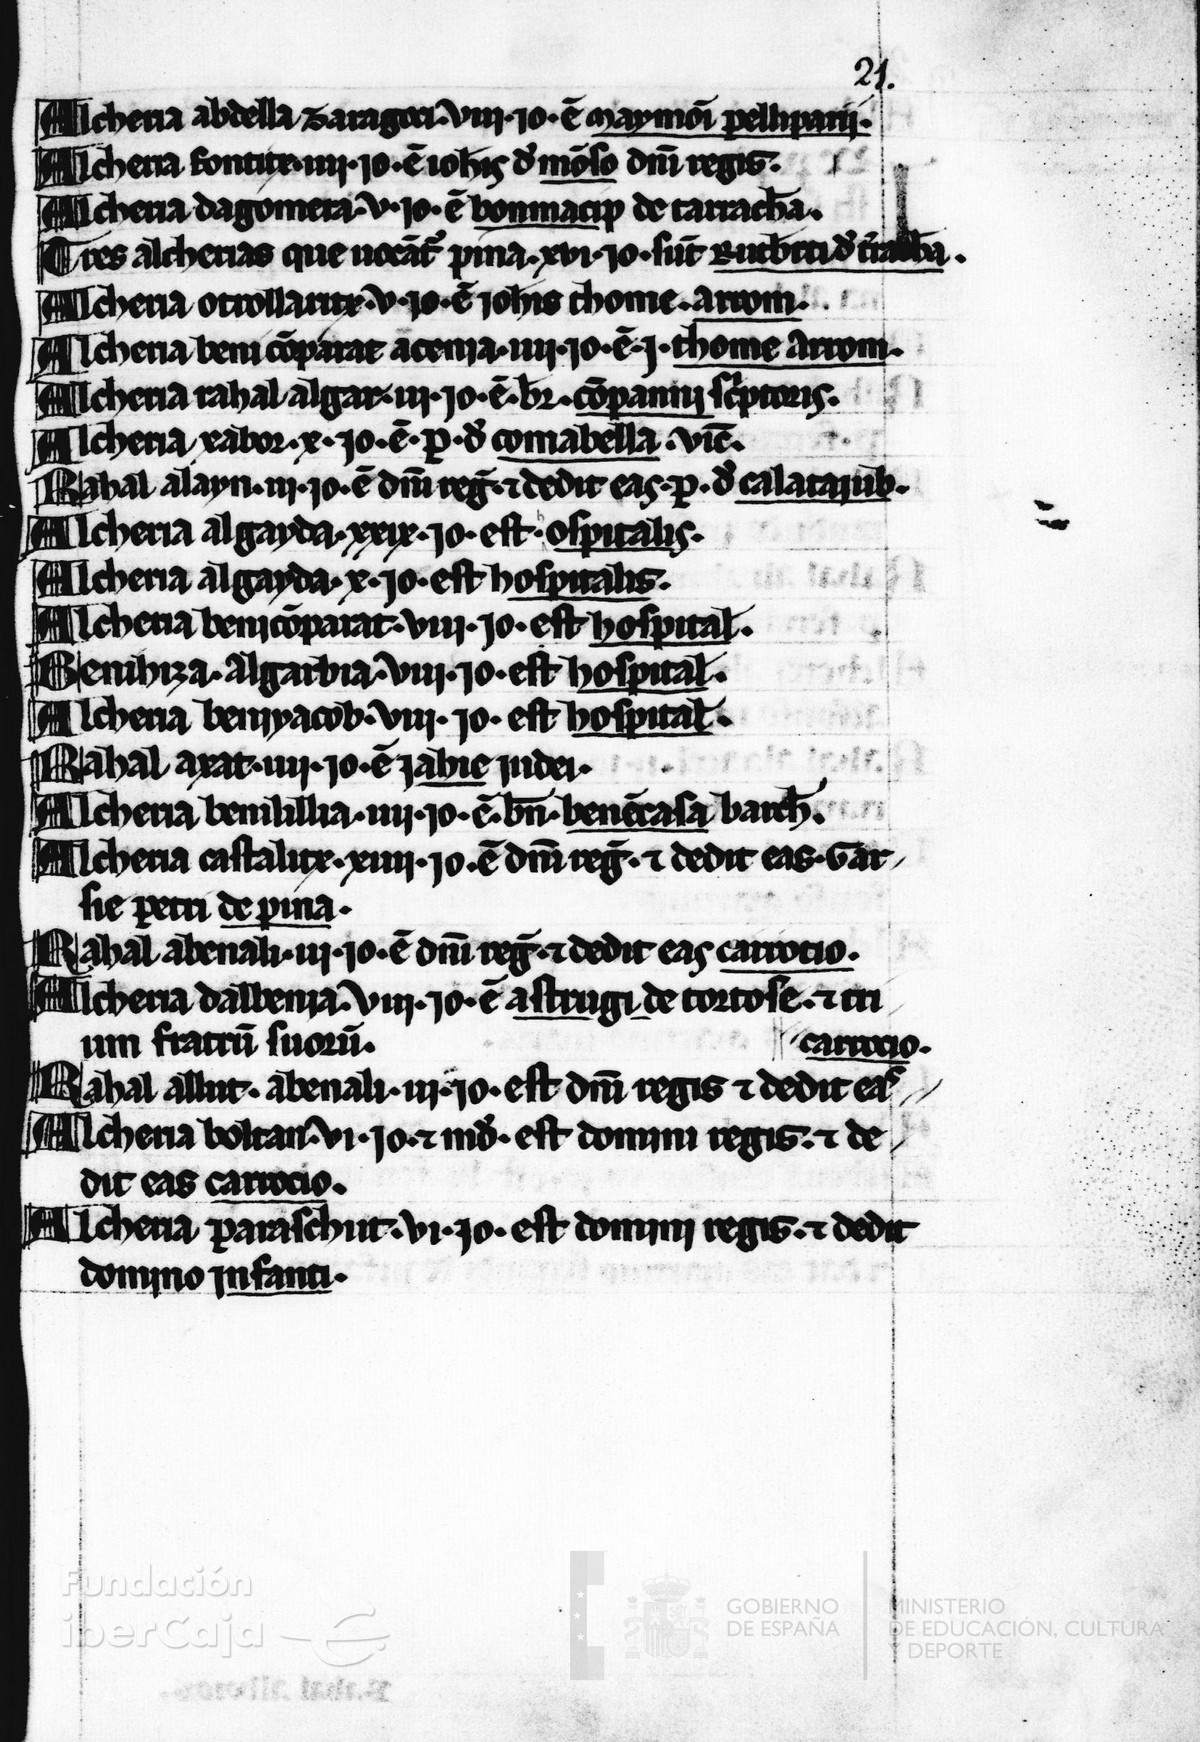 21.
Alcheria abdella Zaragoci. viii. io. ē maymōī pelliparii.
Alcheria fontitx. iiii. io. ē iohis d' mōso dnī regis.
Alcheria dagomera. v. io. ē bonmacip de tarrachā.
Tres alcherias que uocāt' pina. xvi. io. sūt
Alcheria otrollaritx. v. io. ē iohis thome. arrom.
Alcheria beni cōparat ācenia. iiii. io. ē. j. thome arrom.
Alcheria rahal algar. iii. io. ē. br. cōpannii sc'ptoris.
Alcheria xabor. x. io. ē. p. d' comabella. vič.
Rahal alayn. iii. io. ē dnī reḡ. ⁊ dedit eas. p. d' calataiub.
Alcheria algayda. xxix. io. est. hospitalis.
Alcheria algayda. x. io. est hospitalis.
Alcheria benicōparat. viii. io. est hospital.
Benihiza. algarbia. viii. io. est hospital.
Alcheria beniyacob. viii. io. est hospital.
Rahal axat. iiii. io. ē iahie iudei.
Alcheria benilillia. iiii. io. ē. bn̄. benēcasa barch.
Alcheria castalitx. xiiii. io. ē dnī reḡ. ⁊ dedit eas. Gar
sie petri de pina.
Rahal abenali. iii. io. ē dnī reḡ. ⁊ dedit eas carrocio.
Alcheria dalbenia. viii. io. ē astrugi de tortose. ⁊ tri
um fratrū suorū.
carrocio.
Rahal allut. abenali. iii. io. est dnī regis ⁊ dedit eas
Alcheria boltan. vi. io. ⁊ md'. est domini regis. ⁊ de
dit eas carrocio.
Alcheria paraschut. vi. io. est domini regis. ⁊ dedit
domino infanti.
Fundación
iberCaja
GOBIERNO
DE ESPAÑA
MINISTERIO
DE EDUCACIÓN, CULTURA
Y DEPORTE